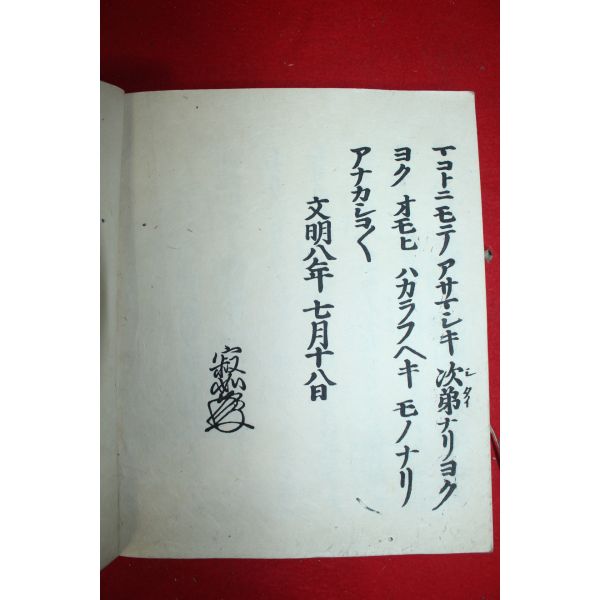 マコトニモテ アサマシキ 次第ナリヨク
シタイ
ヨク オモヒ ハカラフヘキ モノナリ
アナカシコ〱
文明八年 七月十八日
寂如